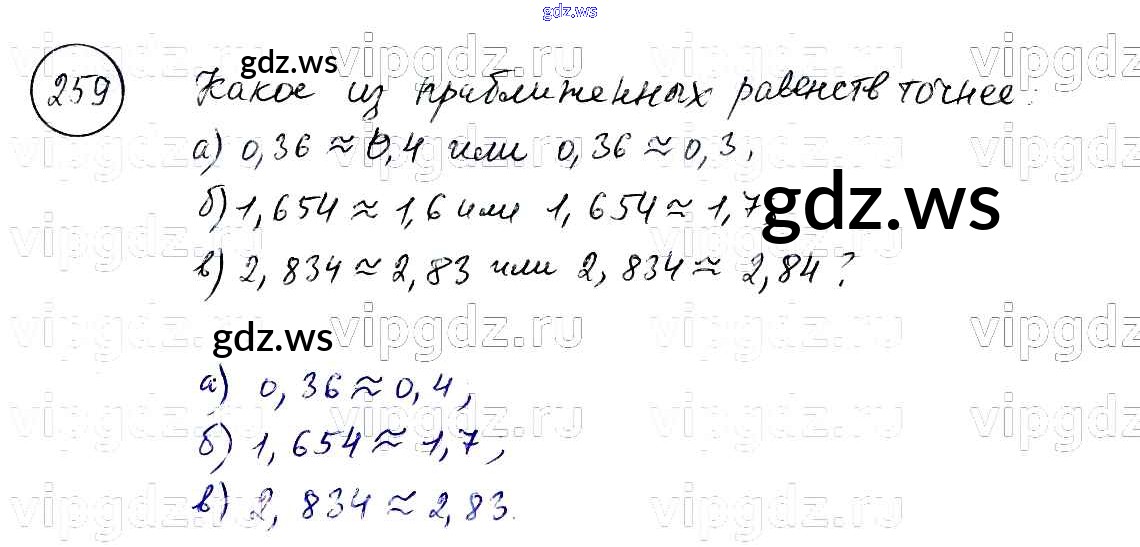 gdz.ws
vipgdz.ru vipgdz.ru vipgdz.ru vipgdz
gdz.ws
259 Какое из приближенных равенств точнее:
а) 0,36 ≈ 0,4 или 0,36 ≈ 0,3,
vipgdz.ru vipgdz.ru vipgdz.ru vipgdz
б) 1,654 ≈ 1,6 или 1,654 ≈ 1,7,
gdz.ws
vipgdz.ru vipgdz.ru vipgdz.ru vipgdz
в) 2,834 ≈ 2,83 или 2,834 ≈ 2,84?
vipgdz.ru vipgdz.ru vipgdz.ru vipgdz
gdz.ws
а) 0,36 ≈ 0,4,
vipgdz.ru vipgdz.ru vipgdz.ru vipgdz
б) 1,654 ≈ 1,7,
в) 2,834 ≈ 2,83.
vipgdz.ru vipgdz.ru vipgdz.ru vipgdz